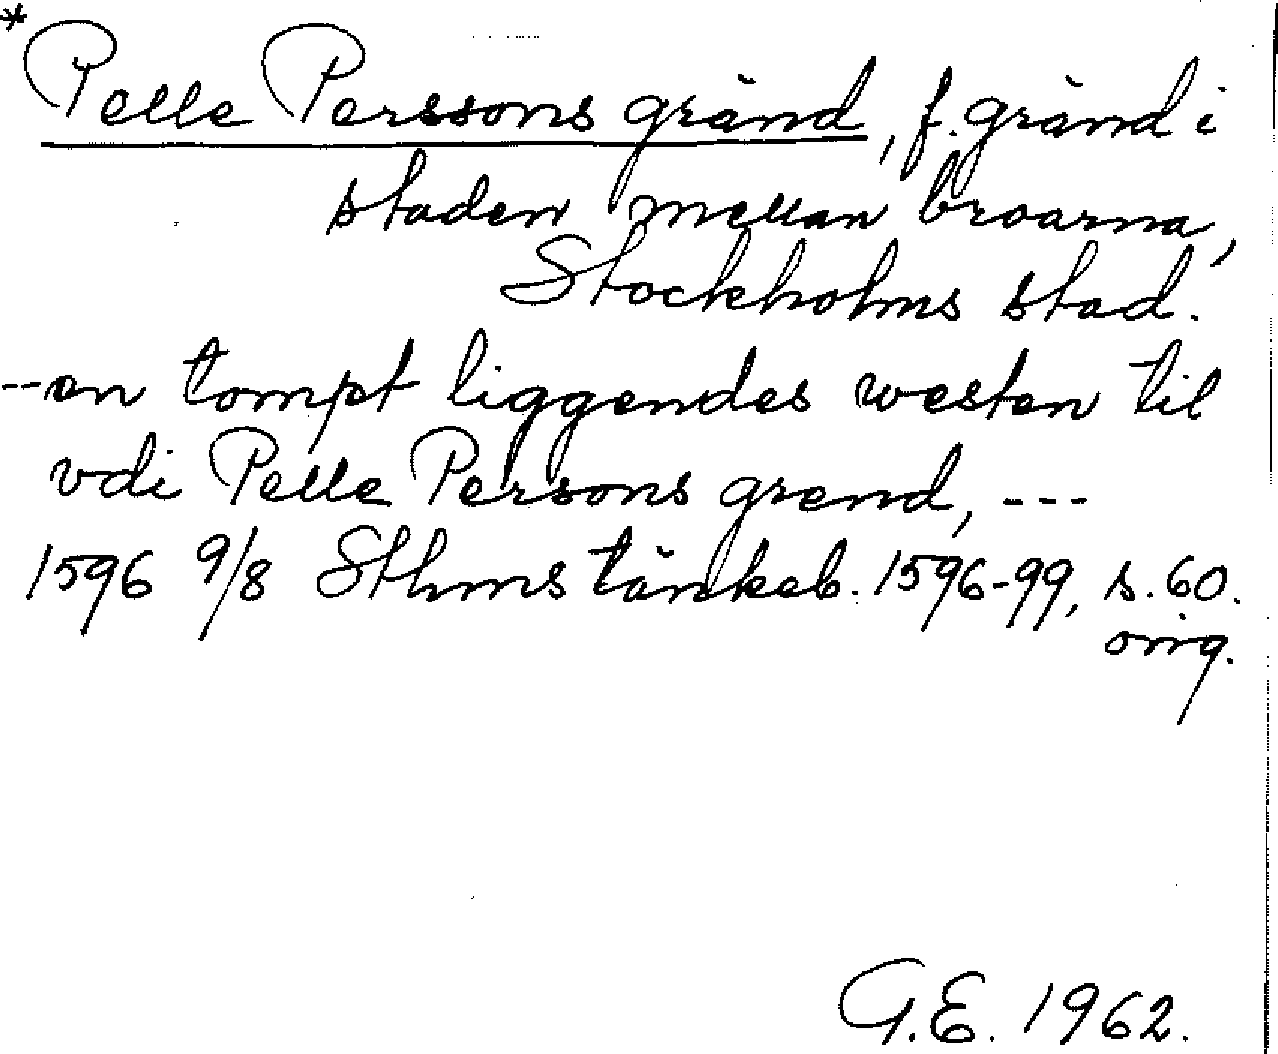 *
Pelle Perssons gränd, f. gränd i
staden mellan broarna,
Stockholms stad.
--en tompt liggendes westen til
vdi Pelle Persons grend, ---
1596 9/8 Sthms tänkeb. 1596-99, s. 60.
orig.
G.E. 1962.